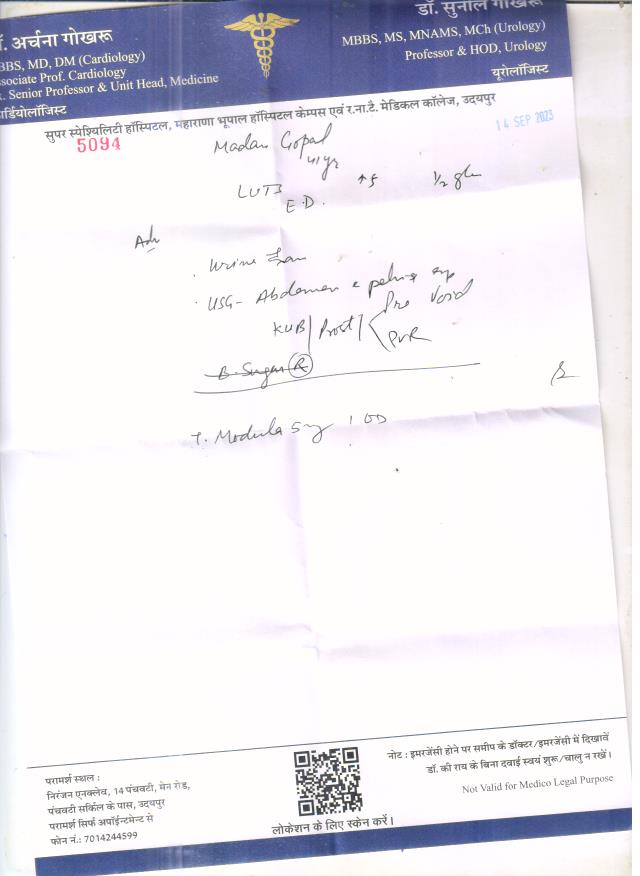 डॉ. सुनील गोखरू
. अर्चना गोखरू
MBBS, MS, MNAMS, MCh (Urology)
BBS, MD, DM (Cardiology)
Professor & HOD, Urology
ssociate Prof. Cardiology
. Senior Professor & Unit Head, Medicine
यूरोलॉजिस्ट
र्डियोलॉजिस्ट
सुपर स्पेश्यिलिटी हॉस्पिटल, महाराणा भूपाल हॉस्पिटल केम्पस एवं र.ना.टै. मेडिकल कॉलेज, उदयपुर
5094
14 SEP 2023
Madan Gopal
41yr
LUTS
↑5
E.D.
Adv
Urine
USG- Abdomen
pelvis
KUB/Prost/
Pre Void
PVR
B. Sugar (R)
T. Modula 5mg 1 OD
परामर्श स्थल :
निरंजन एनक्लेव, 14 पंचवटी, मेन रोड,
पंचवटी सर्किल के पास, उदयपुर
परामर्श सिर्फ अपॉईन्टमेन्ट से
फोन नं.: 7014244599
लोकेशन के लिए स्केन करें।
नोट : इमरजेंसी होने पर समीप के डॉक्टर/इमरजेंसी में दिखावें
डॉ. की राय के बिना दवाई स्वयं शुरू/चालु न रखें।
Not Valid for Medico Legal Purpose